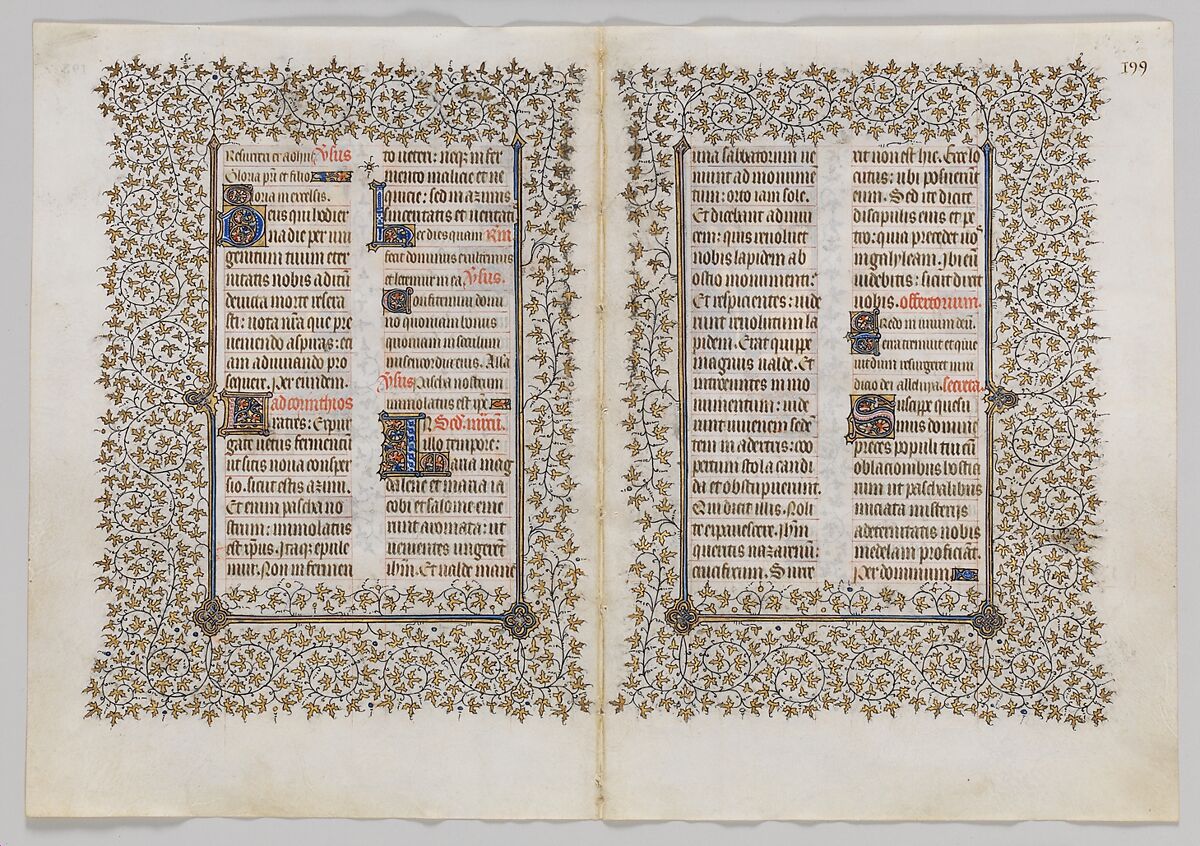 Resurrexi et adhuc V̄sus
Gloria pr̄i et filio
Gloria in excelsis.
Deus qui hodier
na die per uni
genitum tuum eter
nitatis nobis aditū
deuicta morte resera
sti: uota nr̄a que pre
ueniendo aspiras: eti
am adiuuando pro
sequere. Per eundem.
ad corinthios
Fratres: Expur
gate uetus fermentū
ut sitis noua consper
sio. sicut estis azimi.
Etenim pascha no
strum: immolatus
est xp̄us. Itaq; epule
mur. Non in fermen
to ueteri: neq; in fer
mento malicie et ne
quicie: sed in azimis
sinceritatis et ueritati
Hec dies quam
fecit dominus exultemus
et letemur in ea V̄sus.
Confitemini domi
no quoniam bonus
quoniam in seculum
misericordia eius. Alla
V̄sus Pascha nostrum
immolatus est xp̄c
Scd. marcū.
In illo tempore:
Maria mag
dalene et maria ia
cobi et salome eme
runt aromata: ut
uenientes ungerēt
ihm̄. Et ualde mane
199
una sabbatorum ue
niunt ad monume
tum: orto iam sole.
Et dicebant ad inui
cem: quis reuoluet
nobis lapidem ab
ostio monumenti:
Et respicientes: uide
runt reuolutum la
pidem. Erat quippe
magnus ualde. Et
introeuntes in mo
numentum: uide
runt iuuenem sede
tem in dextris: coo
pertum stola candi
da et obstupuerunt.
Qui dicit illis. Noli
te expauescere. Ihm̄
queritis nazarenū:
crucifixum. Surre
xit non est hic. Ecce lo
cus: ubi posuerunt
eum. Sed ite dicite
discipulis eius et pe
tro: quia precedet uos
in galyleam. Ibi eū
uidebitis: sicut dixit
uobis. offertorium.
Credo in unum deū.
Terra tremuit et quie
uit dum resurgeret in iu
dicio dei alleluya. secreta.
Suscipe quesu
mus domine
preces populi tui cū
oblationibus hostia
rum ut paschalibus
iniciata misterijs
ad eternitatis nobis
medelam proficiāt.
Per dominum